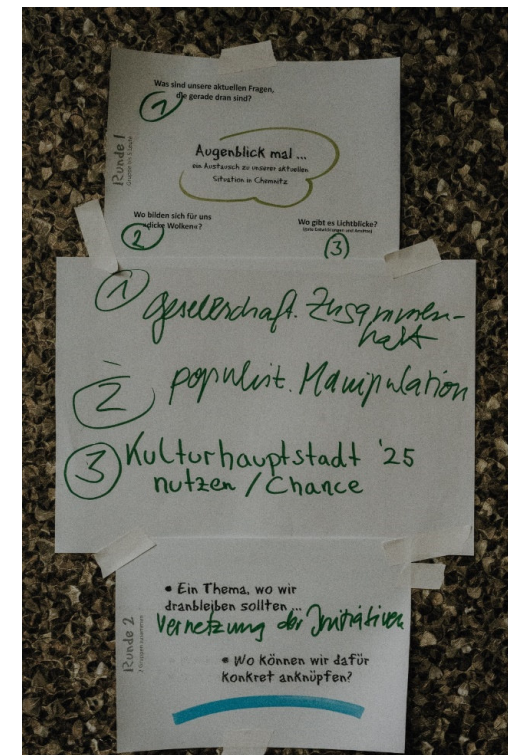 Was sind unsere aktuellen Fragen,
die gerade dran sind?
1
Runde 1
Augenblick mal ...
ein Austausch zu unserer aktuellen
Situation in Chemnitz
Wo bilden sich für uns
»dicke Wolken«?
2
Wo gibt es Lichtblicke?
3
1 gesellschaft. Zusammen-
halt
2 populist. Manipulation
3 Kulturhauptstadt '25
nutzen / Chance
Runde 2
• Ein Thema, wo wir
dranbleiben sollten ...
Vernetzung der Initiativen
• Wo können wir dafür
konkret anknüpfen?